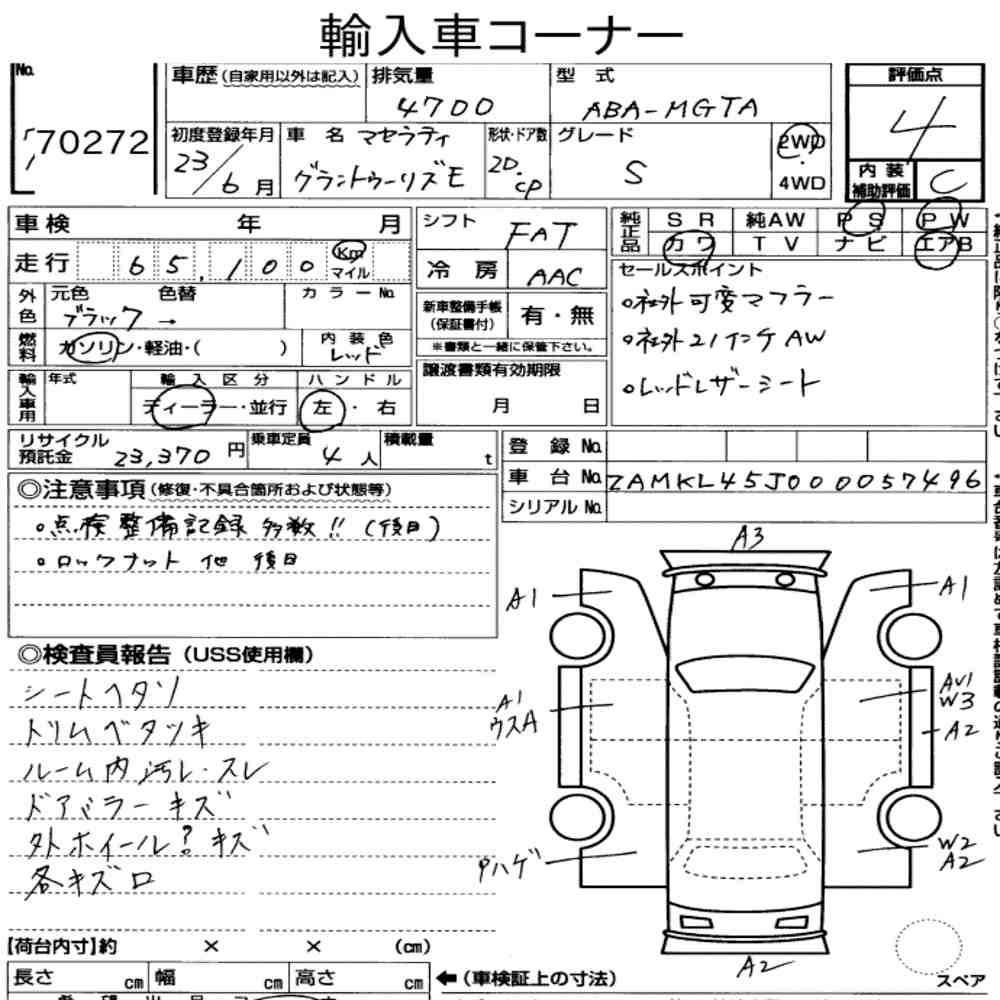 輸入車コーナー
No.
70272
車歴(自家用以外は記入)
排気量
4700
型式
ABA-MGTA
評価点
4
初度登録年月
23/6月
車名
マセラティ
グラントゥーリズモ
形状・ドア数
2D.CP
グレード
S
2WD
4WD
内装補助評価
C
車検 年 月
シフト
FAT
純正品
SR 純AW PS PW
カワ TV ナビ エアB
走行 65,100 Km マイル
冷房
AAC
セールスポイント
○社外可変マフラー
○社外21インチAW
○レッドレザーシート
外色
元色 色替
ブラック→
カラーNo.
新車整備手帳
(保証書付)
有・無
※書類と一緒に保管下さい。
燃料
ガソリン・軽油・( )
内装色
レッド
譲渡書類有効期限
月 日
輸入車用
年式
輸入区分
ディーラー・並行
ハンドル
左・右
リサイクル預託金
23,370円
乗車定員
4人
積載量
t
登録No.
車台No.
ZAMKL45J000057496
シリアルNo.
◎注意事項(修復・不具合箇所および状態等)
○点検整備記録多数!!(後日)
○ロックナット他 後日
◎検査員報告(USS使用欄)
シートヘタリ
トリムベタツキ
ルーム内汚レ・スレ
ドアミラーキズ
外ホイール? キズ
各キズロ
A3
A1
A1
A1
ウスA
AU1
W3
A2
Pハゲ
W2
A2
A2
スペア
【荷台内寸】約 × × (cm)
長さ cm 幅 cm 高さ cm
←(車検証上の寸法)